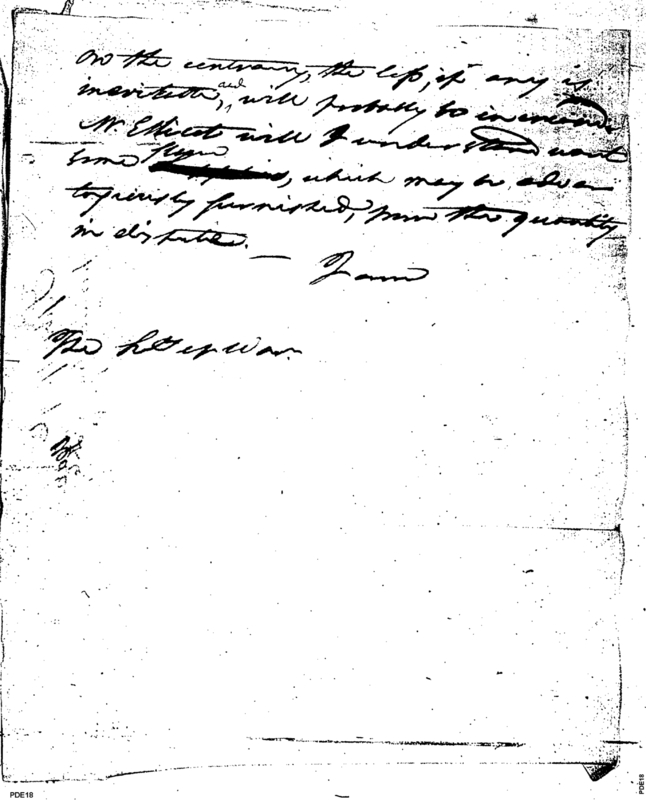 On the contrary, the less, if any is
inevitable, and will probably be increased
Mr. Ellicott will I understand want
some
, which may be advan
tageously furnished, from the quantity
in
I am
The of War.
PDE18
PDE18